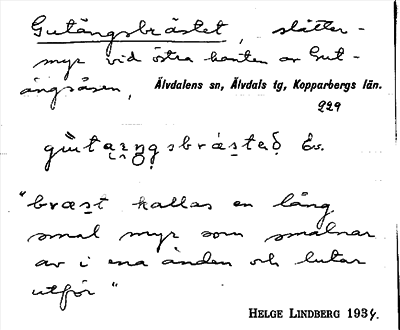 Gutängsbrästet, slåtter-
myr vid östra kanten av Gut-
ångsåsen, Älvdalens sn, Älvdals tg, Kopparbergs län.
229
Ev.
"bræst kallas en lång
smal myr som smalnar
av i ena änden och lutar
utför"
HELGE LINDBERG 1934.